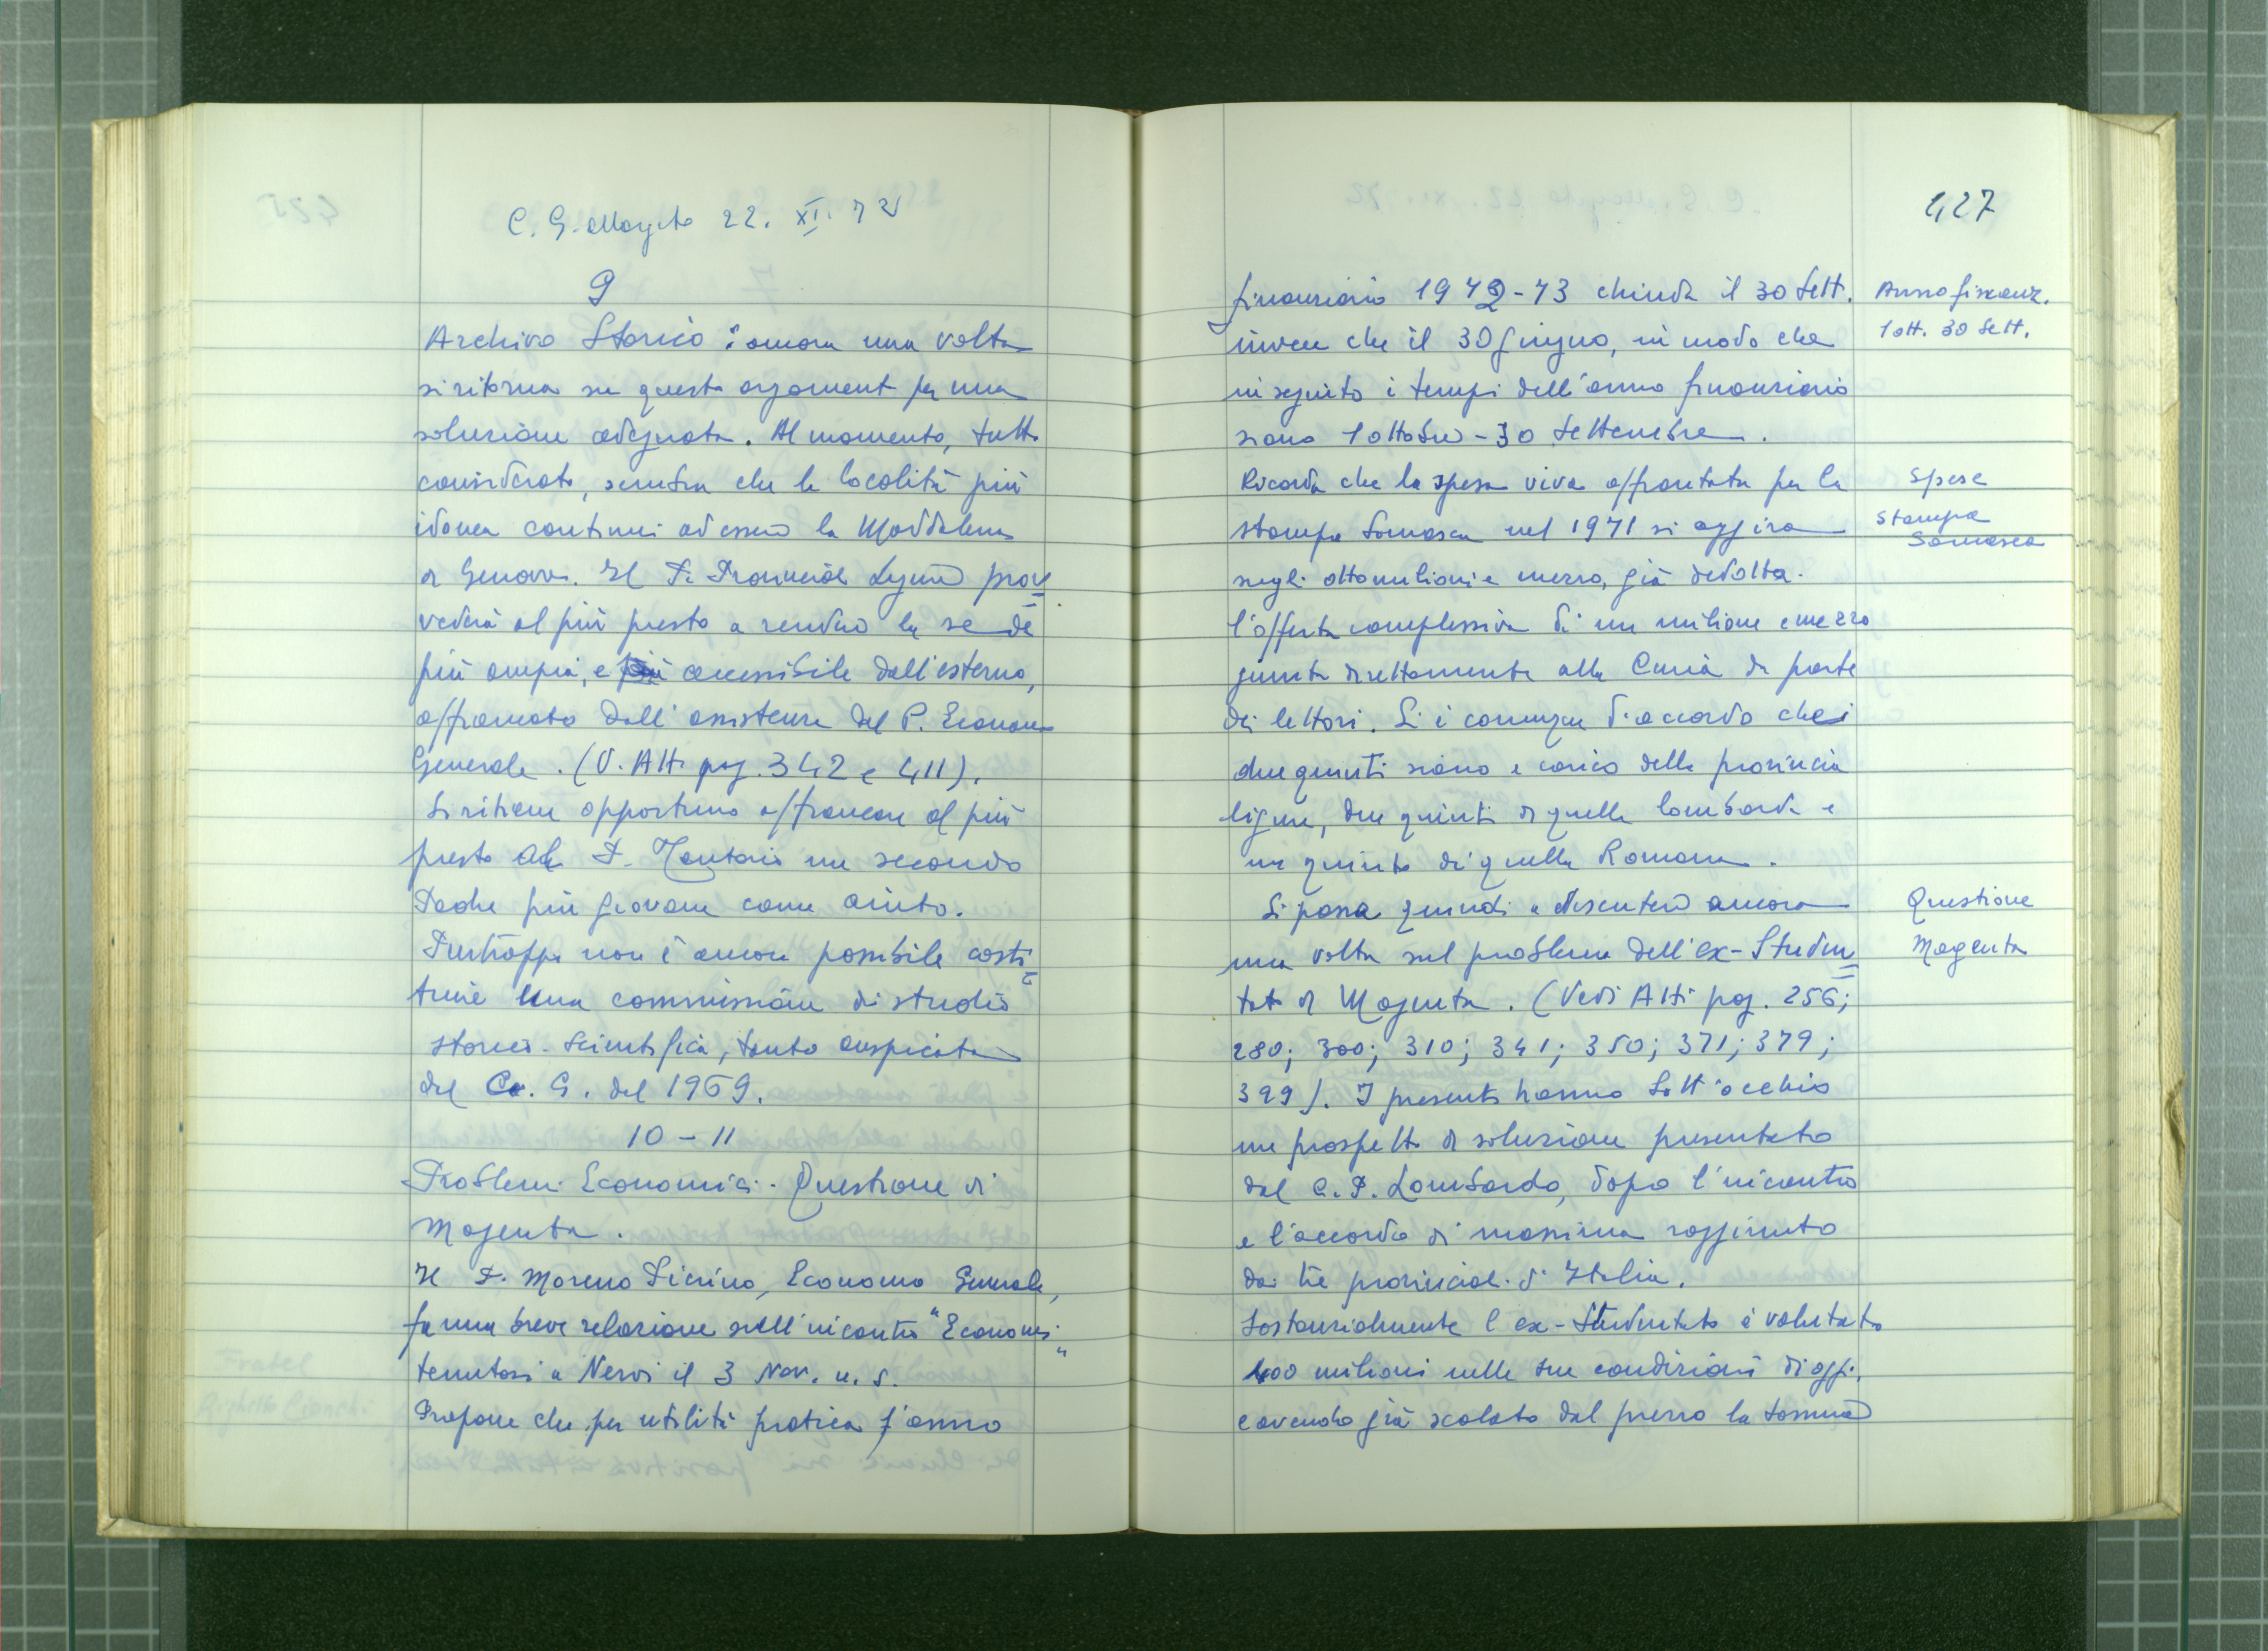 C. G. Magenta 22. XI. 72
9
Archivio Storico : ancora una volta
si ritorna su questo argoment per una
soluzione adeguata. Al momento, tutto
considerato, sembra che la località più
idonea continui ad essere la Maddalena
di Genova. Il P. Provinciale Ligure prov=
vederà al più presto a rendere la sede
più ampia, e più accessibile dall'esterno,
affiancato dall'assistenza del P. Economo
Generale. (V. Atti pag. 342 e 411).
Si ritiene opportuno affiancare al più
presto al P. Tentorio un secondo
Padre più giovane come aiuto.
Purtroppo non è ancora possibile costi=
tuire una commissione di studio
storico-scientifica, tanto auspicata
dal C. G. del 1969.
10 - 11
Problemi Economici - Questione di
Magenta.
Il P. Moreno Picrino, Economo Generale,
fa una breve relazione sull'incontro "Economi"
tenutosi a Nervi il 3 Nov. u. s.
Propone che per utilità pratica l'anno
427
finanziario 1972-73 chiuda il 30 Sett.
invece che il 30 Giugno, in modo che
in seguito i tempi dell'anno finanziario
siano 1 ottobre - 30 Settembre.
Ricorda che la spesa viva affrontata per la
stampa Somasca nel 1971 si aggira
sugli otto milioni e mezzo, già dedotta
l'offerta complessiva di un milione e mezzo
giunta direttamente alla Curia da parte
dei lettori. Si è comunque d'accordo che i
due quinti siano a carico della provincia
ligure, due quinti di quella lombarda e
un quinto di quella Romana.
Si passa quindi a discutere ancora
una volta sul problema dell'ex-Studen=
tato di Magenta. (Vedi Atti pag. 256;
280; 300; 310; 341; 350; 371; 379;
399). I presenti hanno sott'occhio
un prospetto di soluzione presentato
dal C. P. Lombardo, dopo l'incontro
e l'accordo di massima raggiunto
dai tre provinciali d'Italia.
Sostanzialmente l'ex-Studentato è valutato
400 milioni nelle sue condizioni di oggi,
e avendo già scalato dal prezzo la somma
Anno finanz.
1 ott. 30 Sett.
Spese
Stampa
Somasca
Questione
Magenta